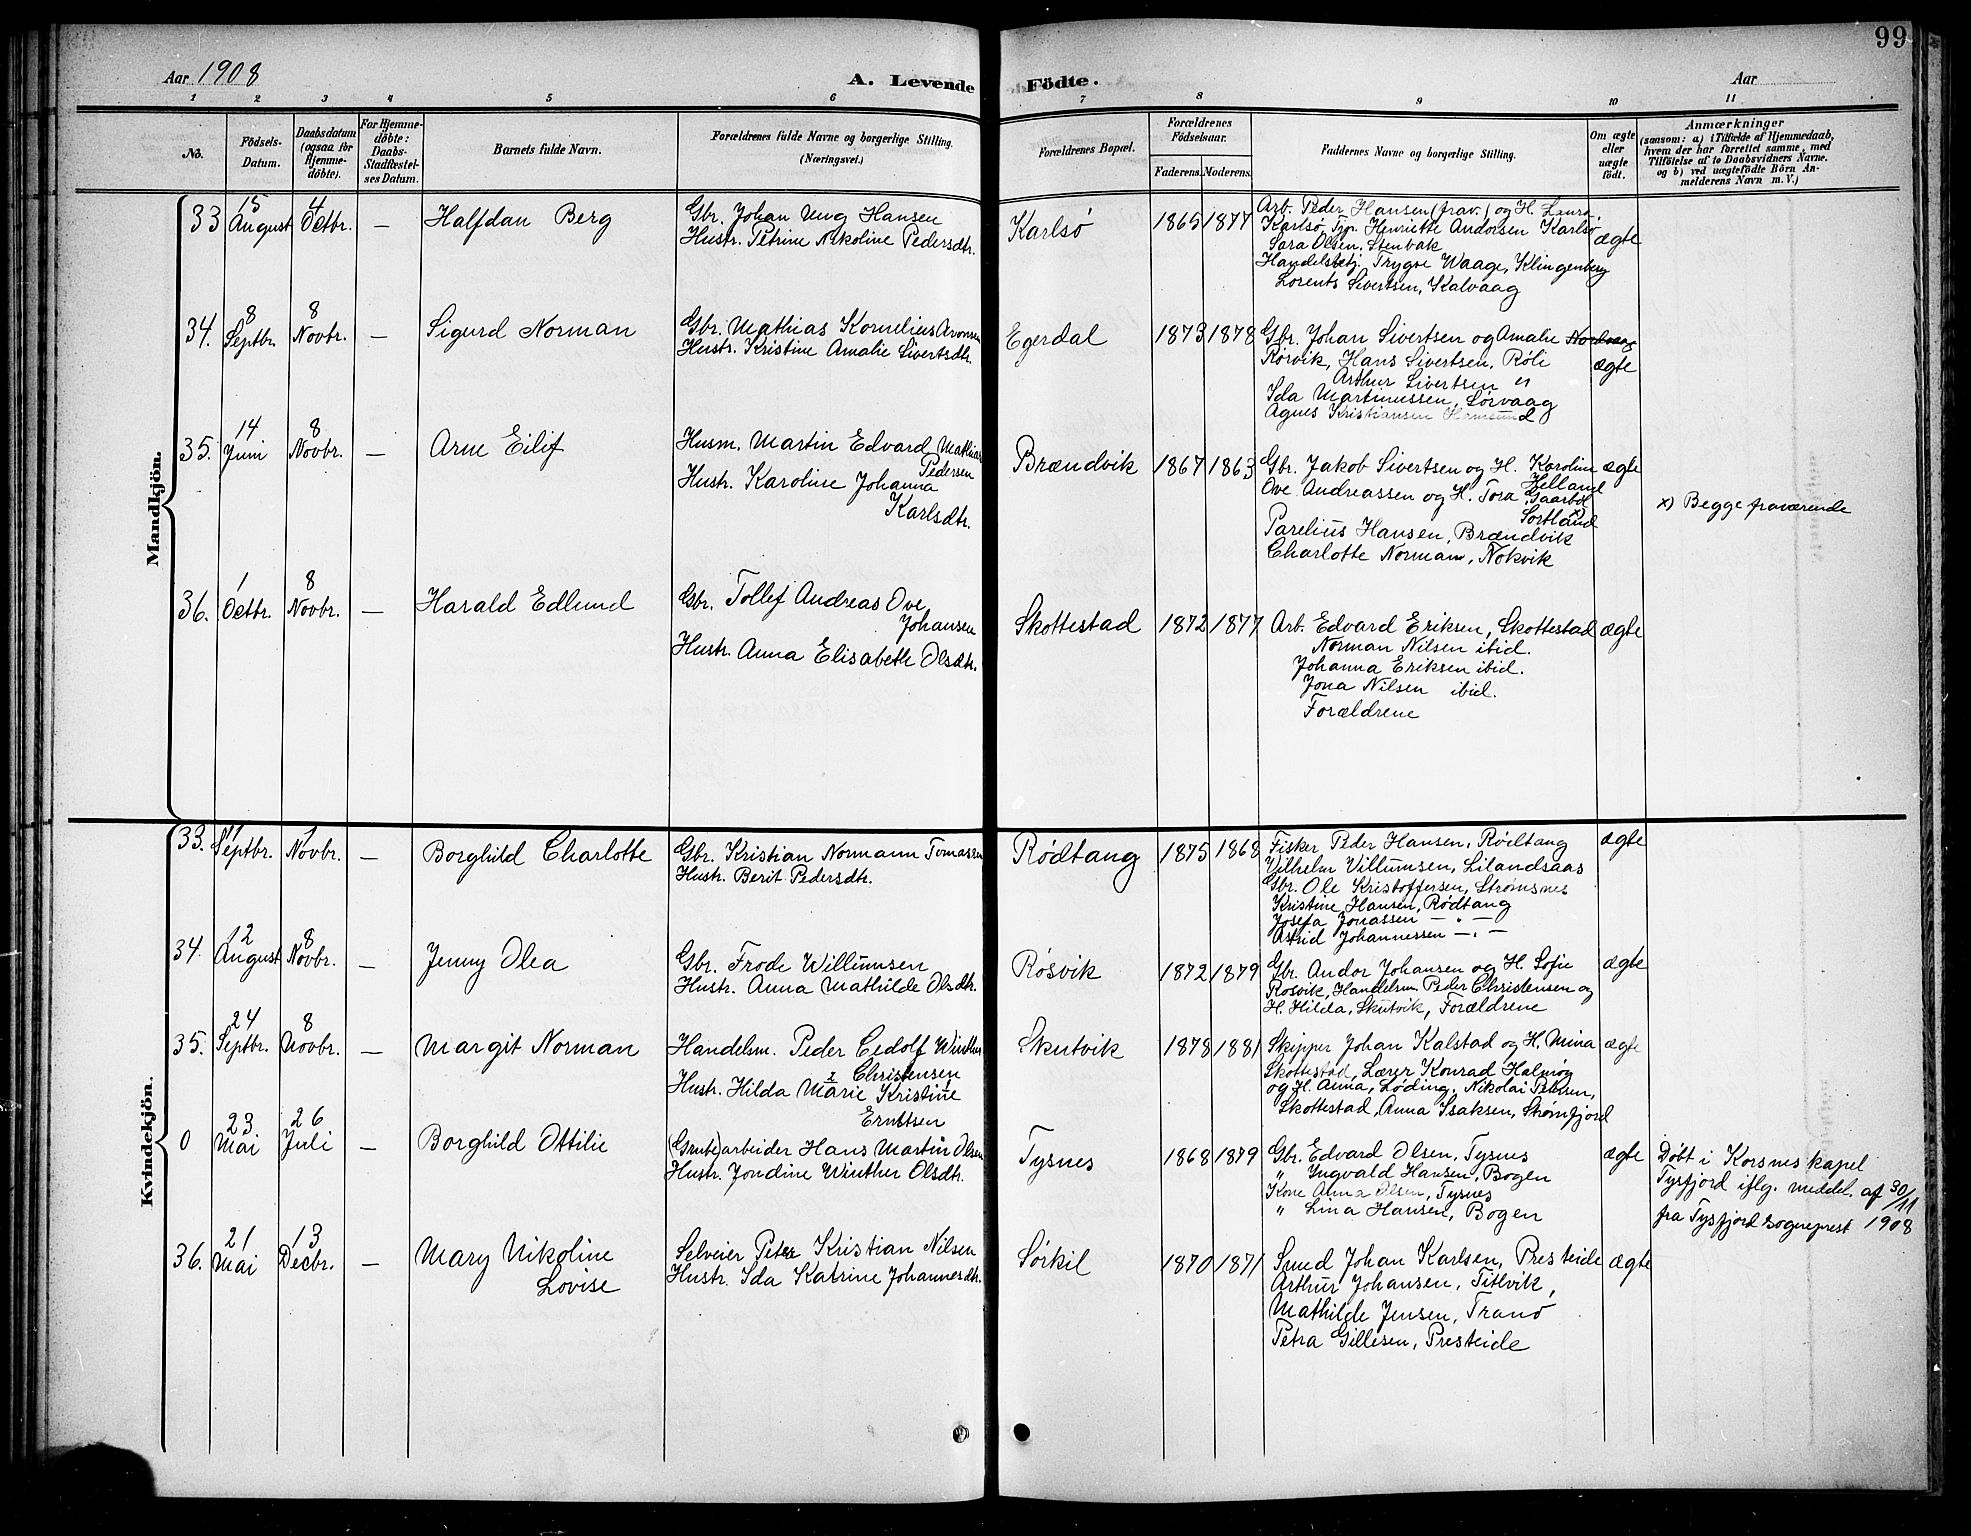 99
Aar 1908
A. Levende
Födte.
Aar
1 2 3 4 5 6 7 8 9 10 11
No.
Födsels-
Datum.
Daabsdatum
(ogsaa for
Hjemme-
döbte).
For Hjemme-
döbte:
Daabs-
Stadfæstel-
ses Datum.
Barnets fulde Navn.
Forældrenes fulde Navne og borgerlige Stilling.
(Næringsvei.)
Forældrenes Bopæl.
Forældrenes
Födselsaar.
Faderens. Moderens.
Faddernes Navne og borgerlige Stilling.
Om ægte
eller
uægte
födt.
Anmærkninger
(saasom: a) i Tilfælde af Hjemmedaab,
hvem der har forrettet samme, med
Tilföielse af to Daabsvidners Navne.
og b) ved uægtefödte Börn An-
melderens Navn m. V.)
Mandkjön.
33 15 August 4 Octbr. — Halfdan Berg
Gbr. Johan Hansen
Hustr. Petrine Nikoline Pedersdtr.
Karlsö 1865 1877
Arb. Peder Hansen (frav.) og H. Laura,
Karlsø, Henriette Andorsen Karlsø
Sara Olsen, Stenbak
Handelsbetj. Trygve Waage, Klingenberg
Lorents Sivertsen, Kalvaag
ægte
34. 8 Septbr. 8 Novbr. — Sigurd Norman
Gbr. Mathias Kornelius Aronsen
Hustr. Kristine Amalie Sivertsdtr.
Egerdal 1873 1878
Gbr. Johan Sivertsen og Amalie
Rørvik, Hans Sivertsen, Røli
Arthur Sivertsen "
Ida Martinussen, Sørvaag
Agnes Kristiansen Hamsund
ægte
35. 14 Juni 8 Novbr. — Arne Eilif
Husm. Martin Edvard Mathias
Pedersen
Hustr. Karoline Johanna
Karlsdtr.
Brændvik 1867 1863
Gbr. Jakob Sivertsen og H. Karoline
Helland
Ove Andreassen og H. Tora, Gaarbø
Sortland x)
Parelius Hansen, Brændvik
Charlotte Norman, Nokvik
ægte
x) Begge fraværende
36. 1 Octbr. 8 Novbr. — Harald Edlund
Gbr. Tollef Andreas Ove
Johansen
Hustr. Anna Elisabeth Olsdtr.
Skottestad 1872 1877
Arb. Edvard Eriksen, Skottestad
Norman Nilsen ibid.
Johanna Eriksen ibid.
Jona Nilsen ibid.
Forældrene
ægte
Kvindekjön.
33. 7 Septbr. 1 Novbr. — Borghild Charlotte
Gbr. Kristian Normann Tomassen
Hustr. Berit Pedersdtr.
Rødtang 1875 1868
Fisker Peder Hansen, Rødtang
Vilhelm Villumsen, Lilandsaas
Gbr. Ole Kristoffersen, Strømsnes
Kristine Hansen, Rødtang
Josefa Jonassen — " —
Astrid Johannessen — " —
ægte
34. 12 August 8 Novbr. — Jenny Olea
Gbr. Frode Willumsen
Hustr. Anna Mathilde Olsdtr.
Røsvik 1872 1879
Gbr. Andor Johansen og H. Sofie
Rosvik, Handelsm. Peder Christensen og
H. Hilda, Skutvik, Forældrene
ægte
35. 24 Septbr. 8 Novbr. — Margit Norman
Handelsm. Peder Cedolf Winther
Christensen
Hustr. Hilda Marie Kristine
Erntsen
Skutvik 1878 1881
Skipper Johan Kalstad og H. Mina
Skottestad, Lærer Konrad Halmøy
og H. Anna, Løding, Nikolai Petersen,
Skottestad, Anna Isaksen, Strømfjord
ægte
0 23 Mai 26 Juli — Borghild Ottilie
(Grube)arbeider Hans Martin Olsen
Hustr. Jondine Winther Olsdtr.
Tysnes 1868 1879
Gbr. Edvard Olsen, Tysnes
" Yngvald Hansen, Bogen
Kone Anna Olsen, Tysnes
" Lina Hansen, Bogen
ægte
Døbt i Korsnes kapel
Tysfjord iflg. meddel. af 30/11
fra Tysfjord sogneprest 1908
36. 21 Mai 13 Decbr. — Mary Nikoline
Lovise
Selveier Peter Kristian Nilsen
Hustr. Ida Katrine Johannesdtr.
Sørkil 1870 1871
Smed Johan Karlsen, Presteide
Arthur Johansen, Titlvik,
Mathilde Jensen, Tranø
Petra Gillesen, Presteide
ægte